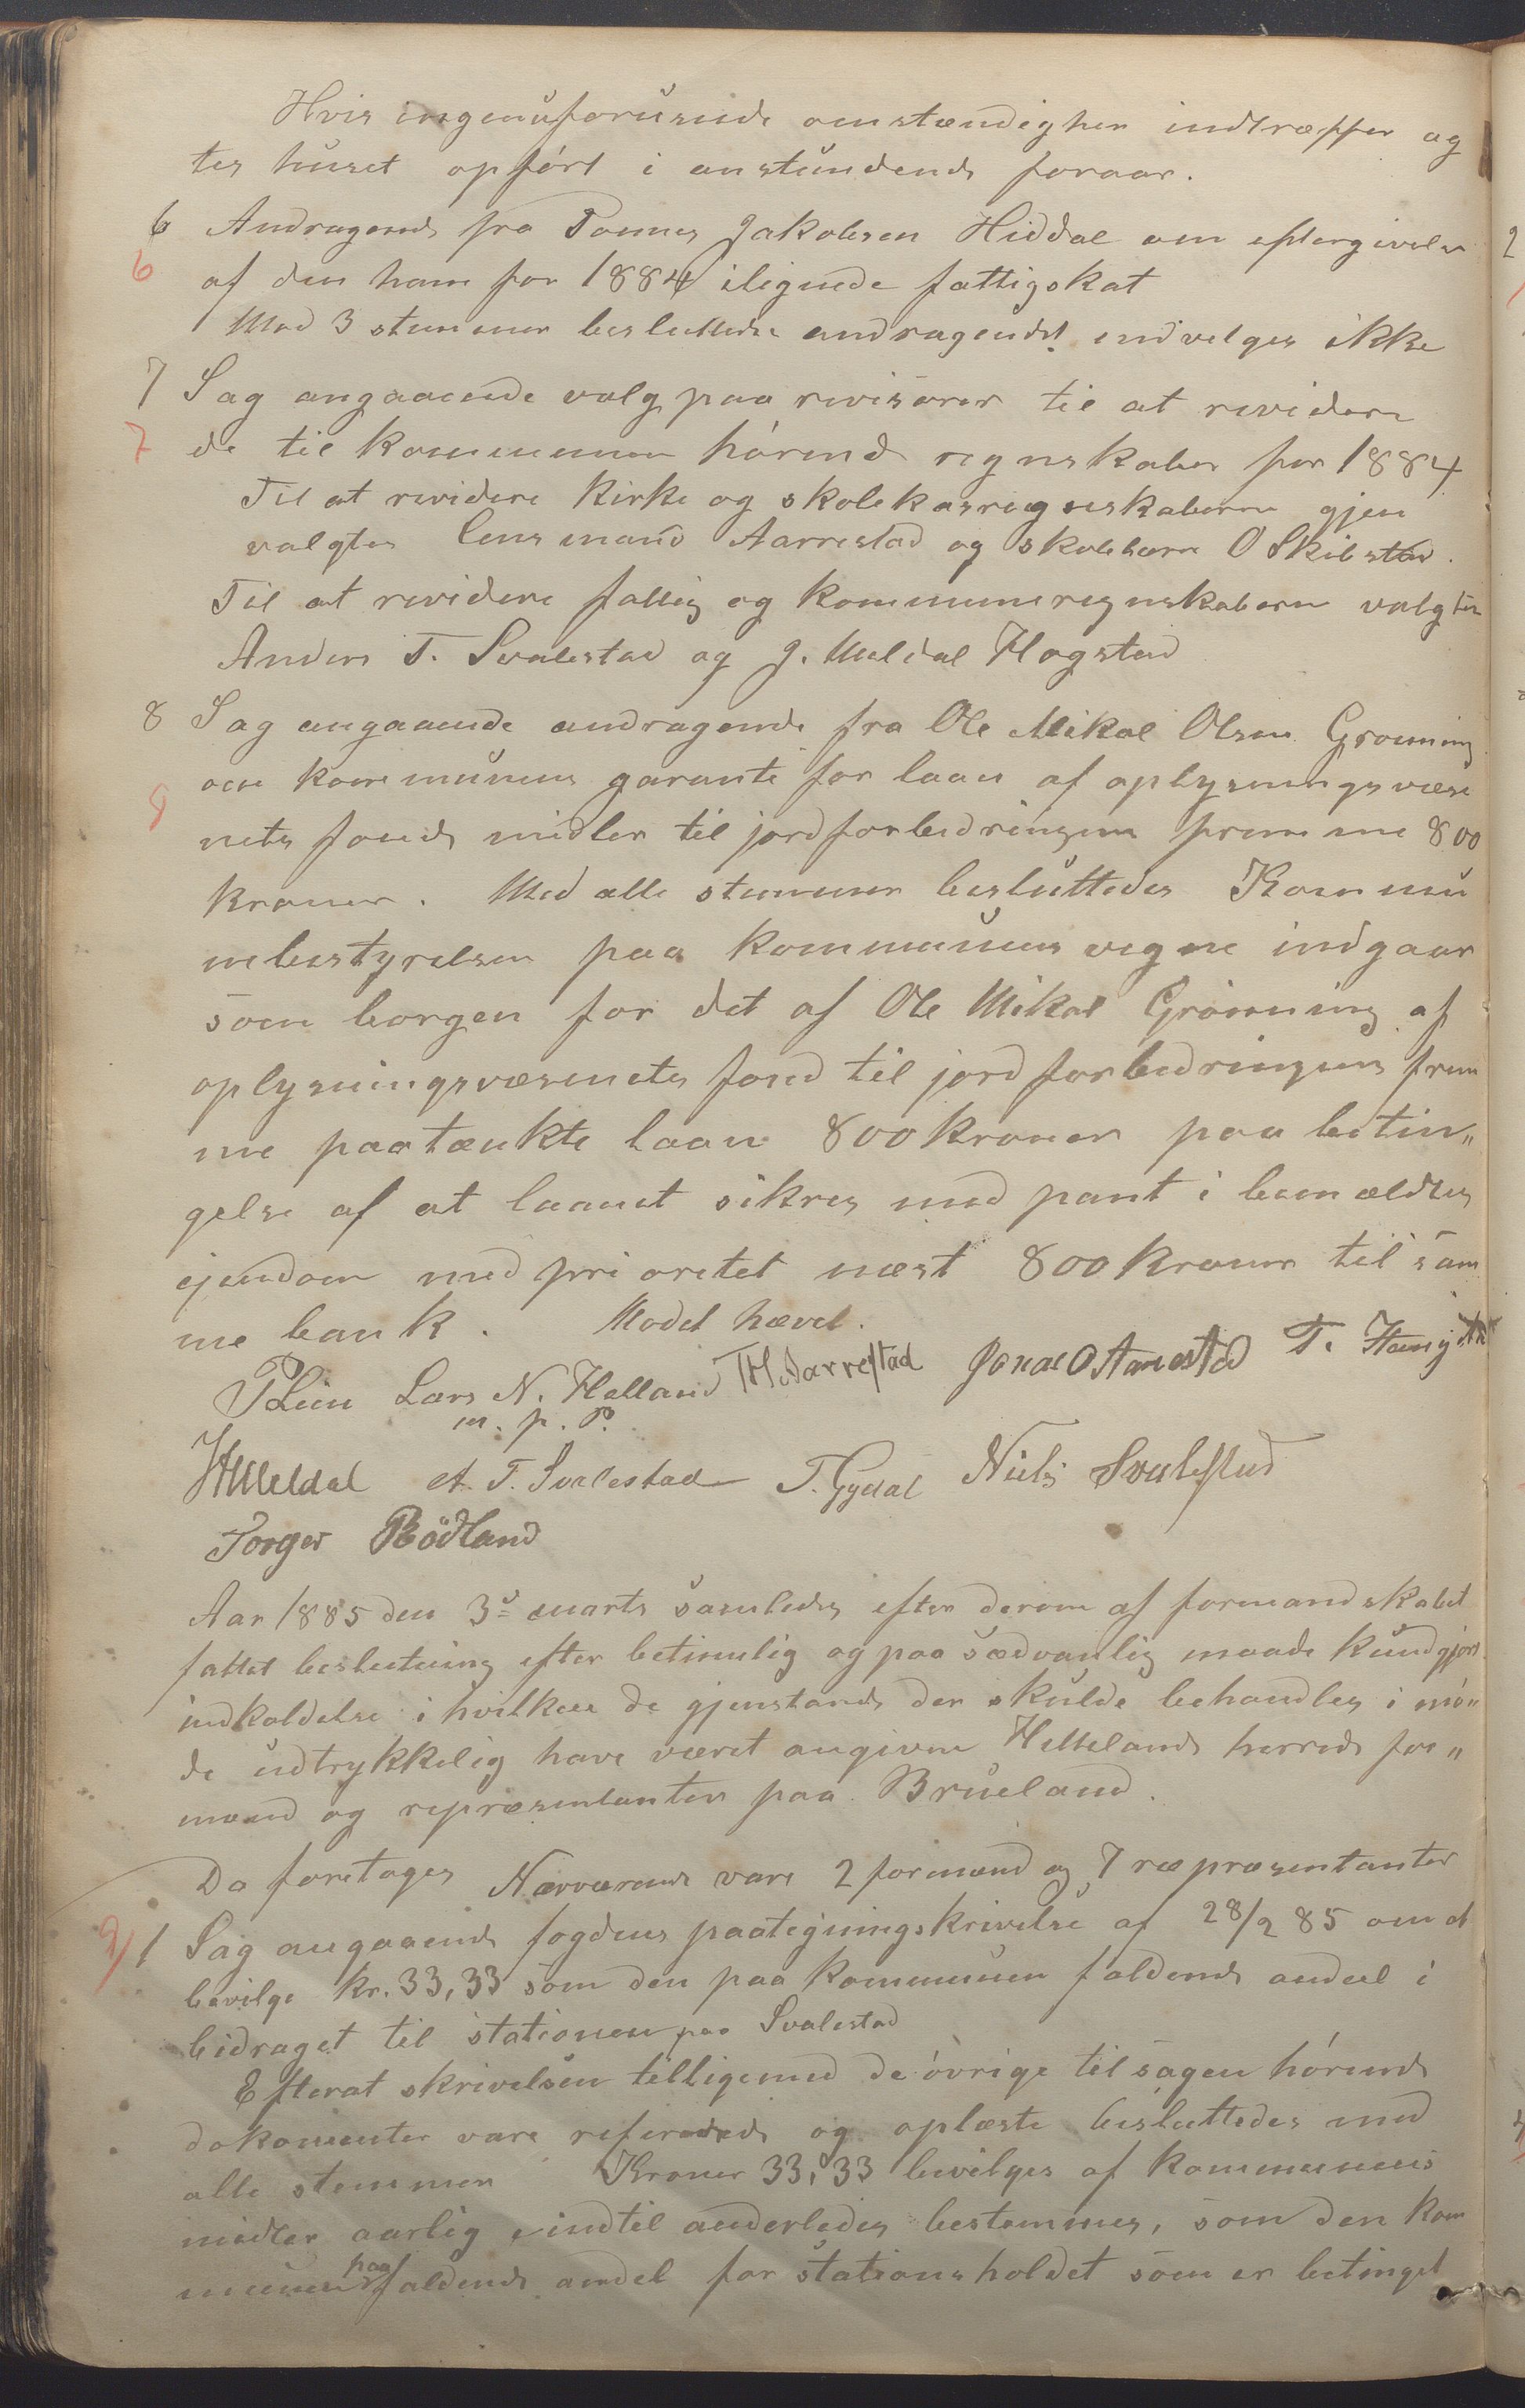 Hvis ingenuforuseende omstændigher indtræffer ag
tes huset opført i anstundende foraar.
6 Andragende fra Tønnes Jakobsen Hiddal om eftergivelse
6 af den ham for 1884 ilignede fattigskat
Med 3 stemmer besluttedes andragendet indvelges ikke
7 Sag angaaende valg paa revisorer til at revidere
7 de til kommunen hørende regnskaber for 1884
Til at revidere Kirke og skolekasregnskaberne gjen
valgtes Lensmand Aarrestad og skolelærer O Skibstad.
Til at revidere fattig og kommuneregnskaberne valgtes
Anders T. Svalestad og J. Meldal Hogstad
8 Sag angaaende andragende fra Ole Mikal Olsen Grøning
om kommunens garanti for laan af oplysningsvæse
nets fonds midler til jordforbedringens fremme 800
kroner. Med alle stemmer besluttedes Kommu
nebestyrelsen paa kommunens vegne indgaar
som borgen for det af Ole Mikal Grønning af
oplysningsvæsenets fond til jordforbedringens frem
me paatænkte laan 800 kroner paa betin„
gelse af at laanet sikres med pant i bemældtes
ejendom med prioretet næst 800 kroner til sam
me bank. Mødet hævet.
Lars N. Helland TH Aarrestad Jonas O Aarrestad T.
m. p. P.
Meldal A. T. Svalestad T. Gydal Niels Svalestad
Torger Rødland
Aar 1885 den 3d marts samledes efter derom af formandskabet
fattet beslutning efter betimelig og paa sædvanlig maade kundgjort
indkaldelse i hvilken de gjenstande der skulde behandles i mø„
de udtrykkelig have været angivne Hellelands herreds for„
mænd og repræsentanter paa Brueland.
Da foretages Nærværende vare 2 formænd og 7 repræsentanter
1 Sag angaaende fogdens paategningskrivelse af 28/2 85 om at
bevilge kr. 33,33 som den paa kommunen faldende andel i
bidraget til stationen paa Svalestad
Efterat skrivelsen tilligemed de øvrige til sagen hørende
dokomenter vare refererede og oplæste besluttedes med
alle stemmer Kroner 33,33 bevilges af kommunens
midler aarlig indtil anderledes bestemmes, som den kom
munen paafaldende andel for stationsholdet som er betinget